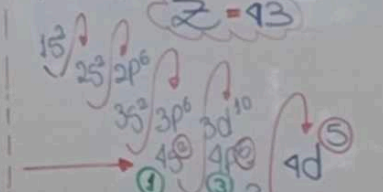 Z = 43
1s²
2s² 2p⁶
3s² 3p⁶ 3d¹⁰
4s² 4p⁶ 4d⑤
① ③